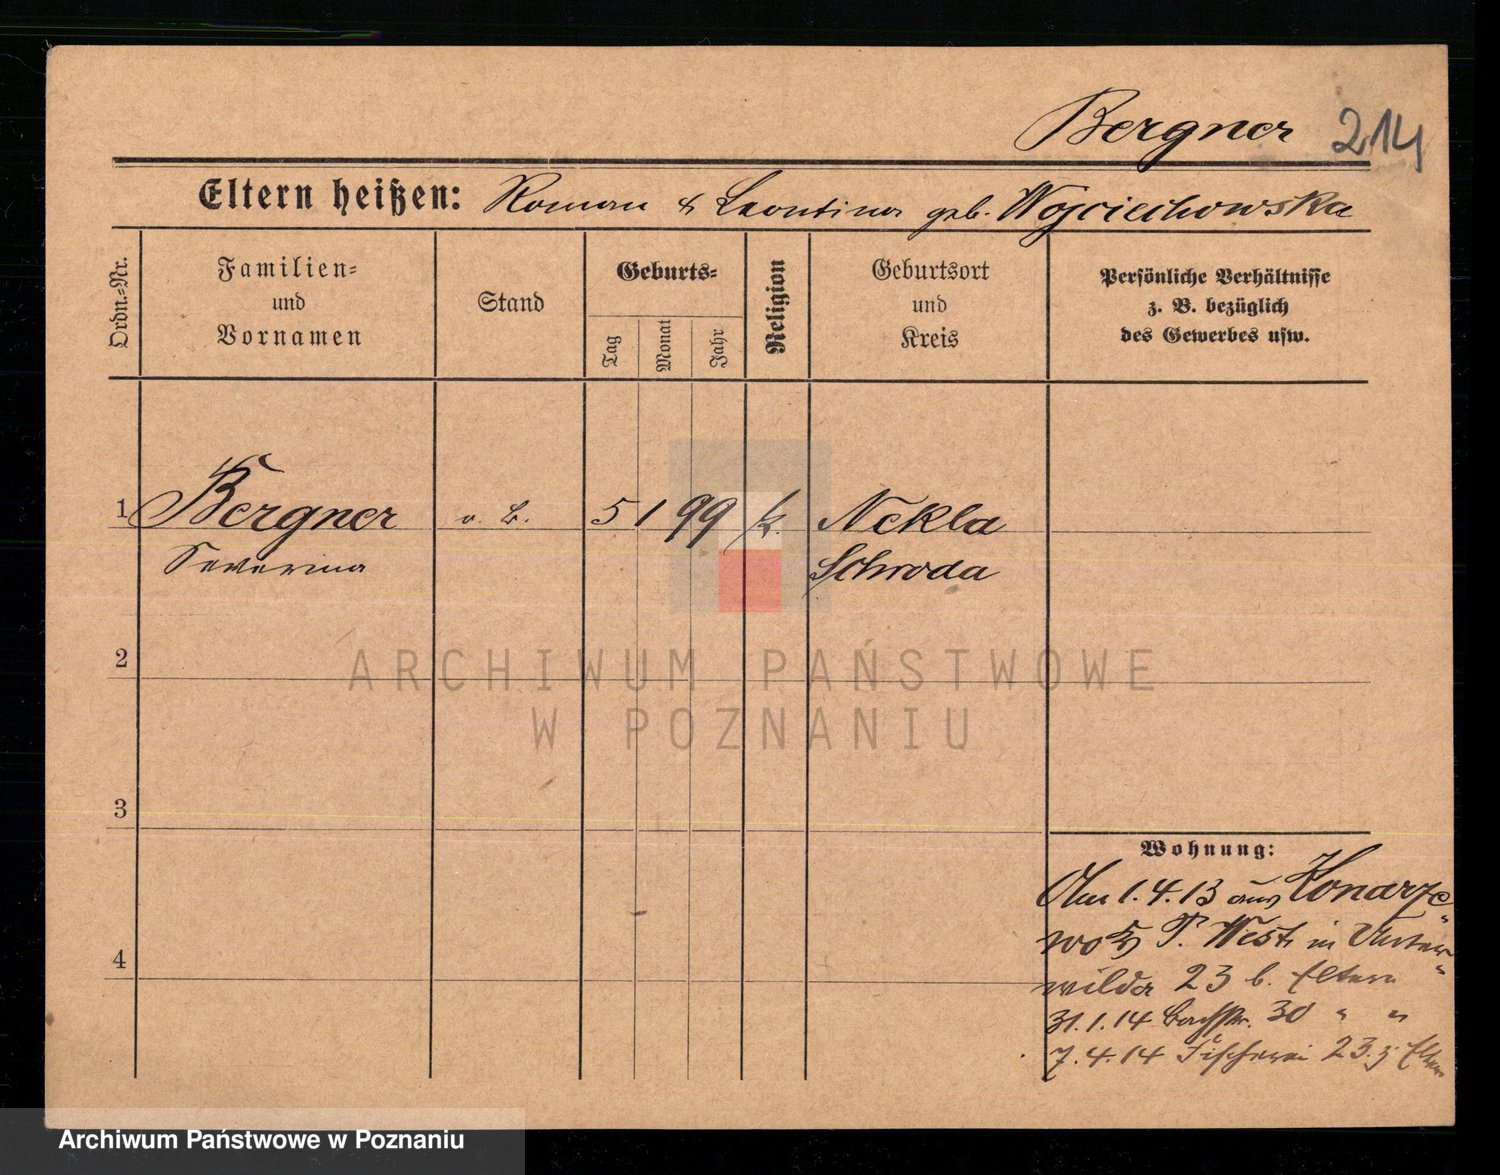 Bergner 214
Eltern heißen: Roman & Leontina geb. Wojciechowska
Ordn.-Nr.
Familien-
und
Vornamen
Stand
Geburts-
Tag
Monat
Jahr
Religion
Geburtsort
und
Kreis
Persönliche Verhältnisse
z. B. bezüglich
des Gewerbes usw.
1 Bergner o. B. 5 1 99 k. Nekla
Severina Schroda
ARCHIWUM PAŃSTWOWE
W POZNANIU
2
3
4
Wohnung:
Am 1.4.13 aus Konarze-
wo P. West in Unter-
wilda 23 b. Eltern
31.1.14 Bachstr. 30 " "
7.4.14 Fischerei 23 z. Eltern
Archiwum Państwowe w Poznaniu